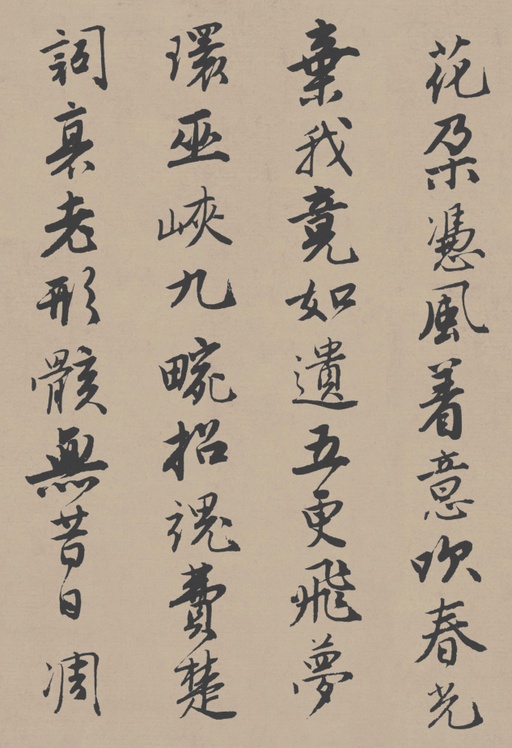 花朶憑風着意吹春光
棄我竟如遺五更飛夢
環巫峽九畹招魂費楚
詞衰老形骸無昔日凋